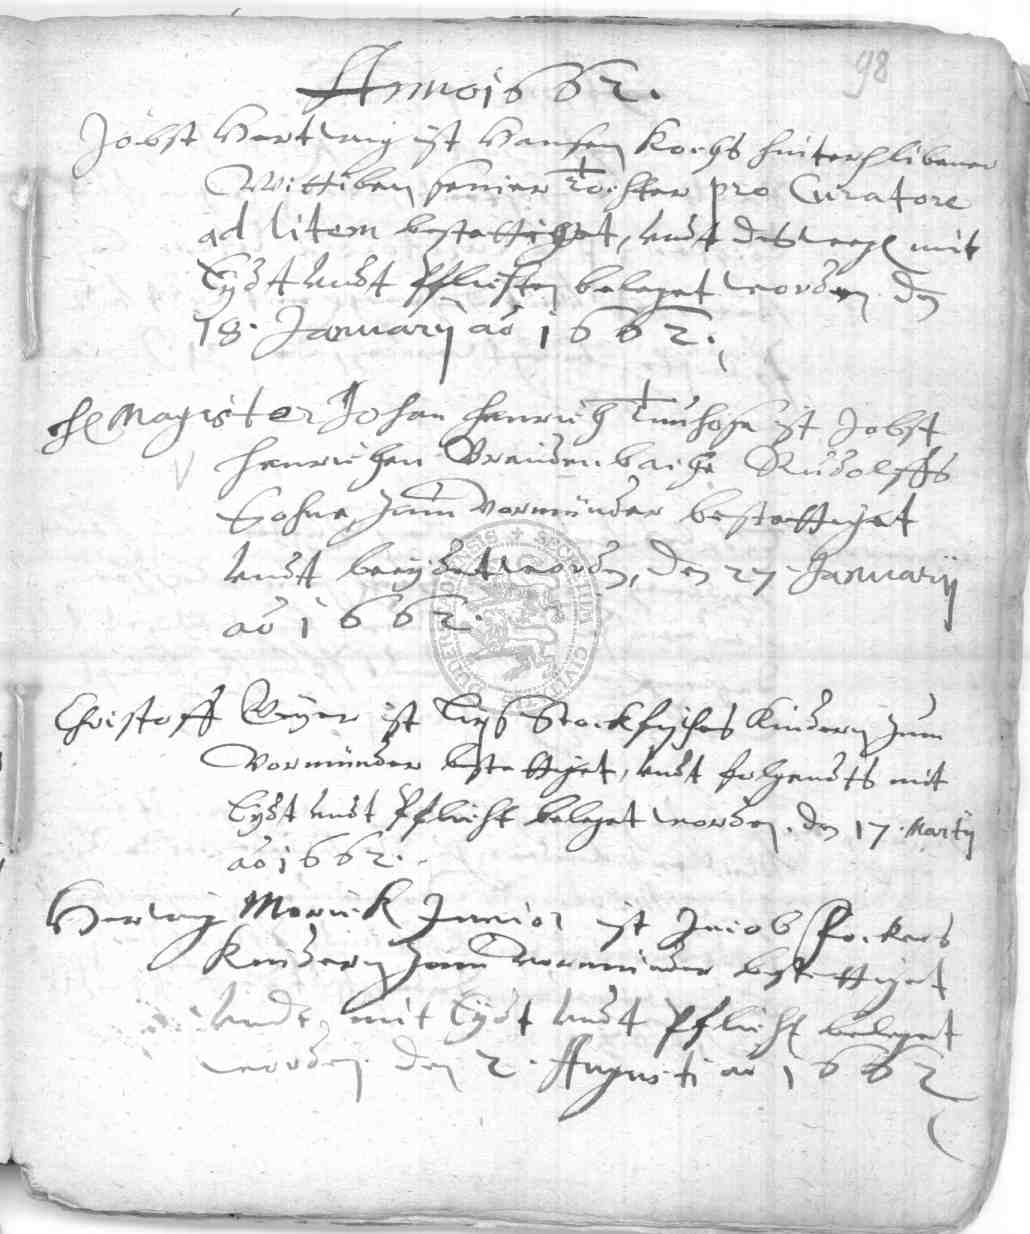 98
Anno 1662.
Jobst Hartwig ist Hansen Kochs hinterlibener
Wittiben seiner Tochter pro Curatore
ad litem bestettiget, undt deswegen mit
Eydt undt Pflichten beleget worden. den
18. January ao 1662.
H Magister Johan Henrich ist Jobst
Henrichen Breidenbachs Rudolffs
Sohne, zum Vormünder bestettiget
undt beeydet worden, den 27 January
ao 1662.
Christoff Beyer ist Stockfisches Kindern zum
Vormünder bestettiget, undt folgendts mit
Eydt undt Pflicht beleget worden. den 17. Martij
ao 1662.
Herwig Junior ist Jacob
Kindern zum Vormünder bestettiget
undt mit Eydt undt Pflicht beleget
worden. den 2. Augusti ao 1662